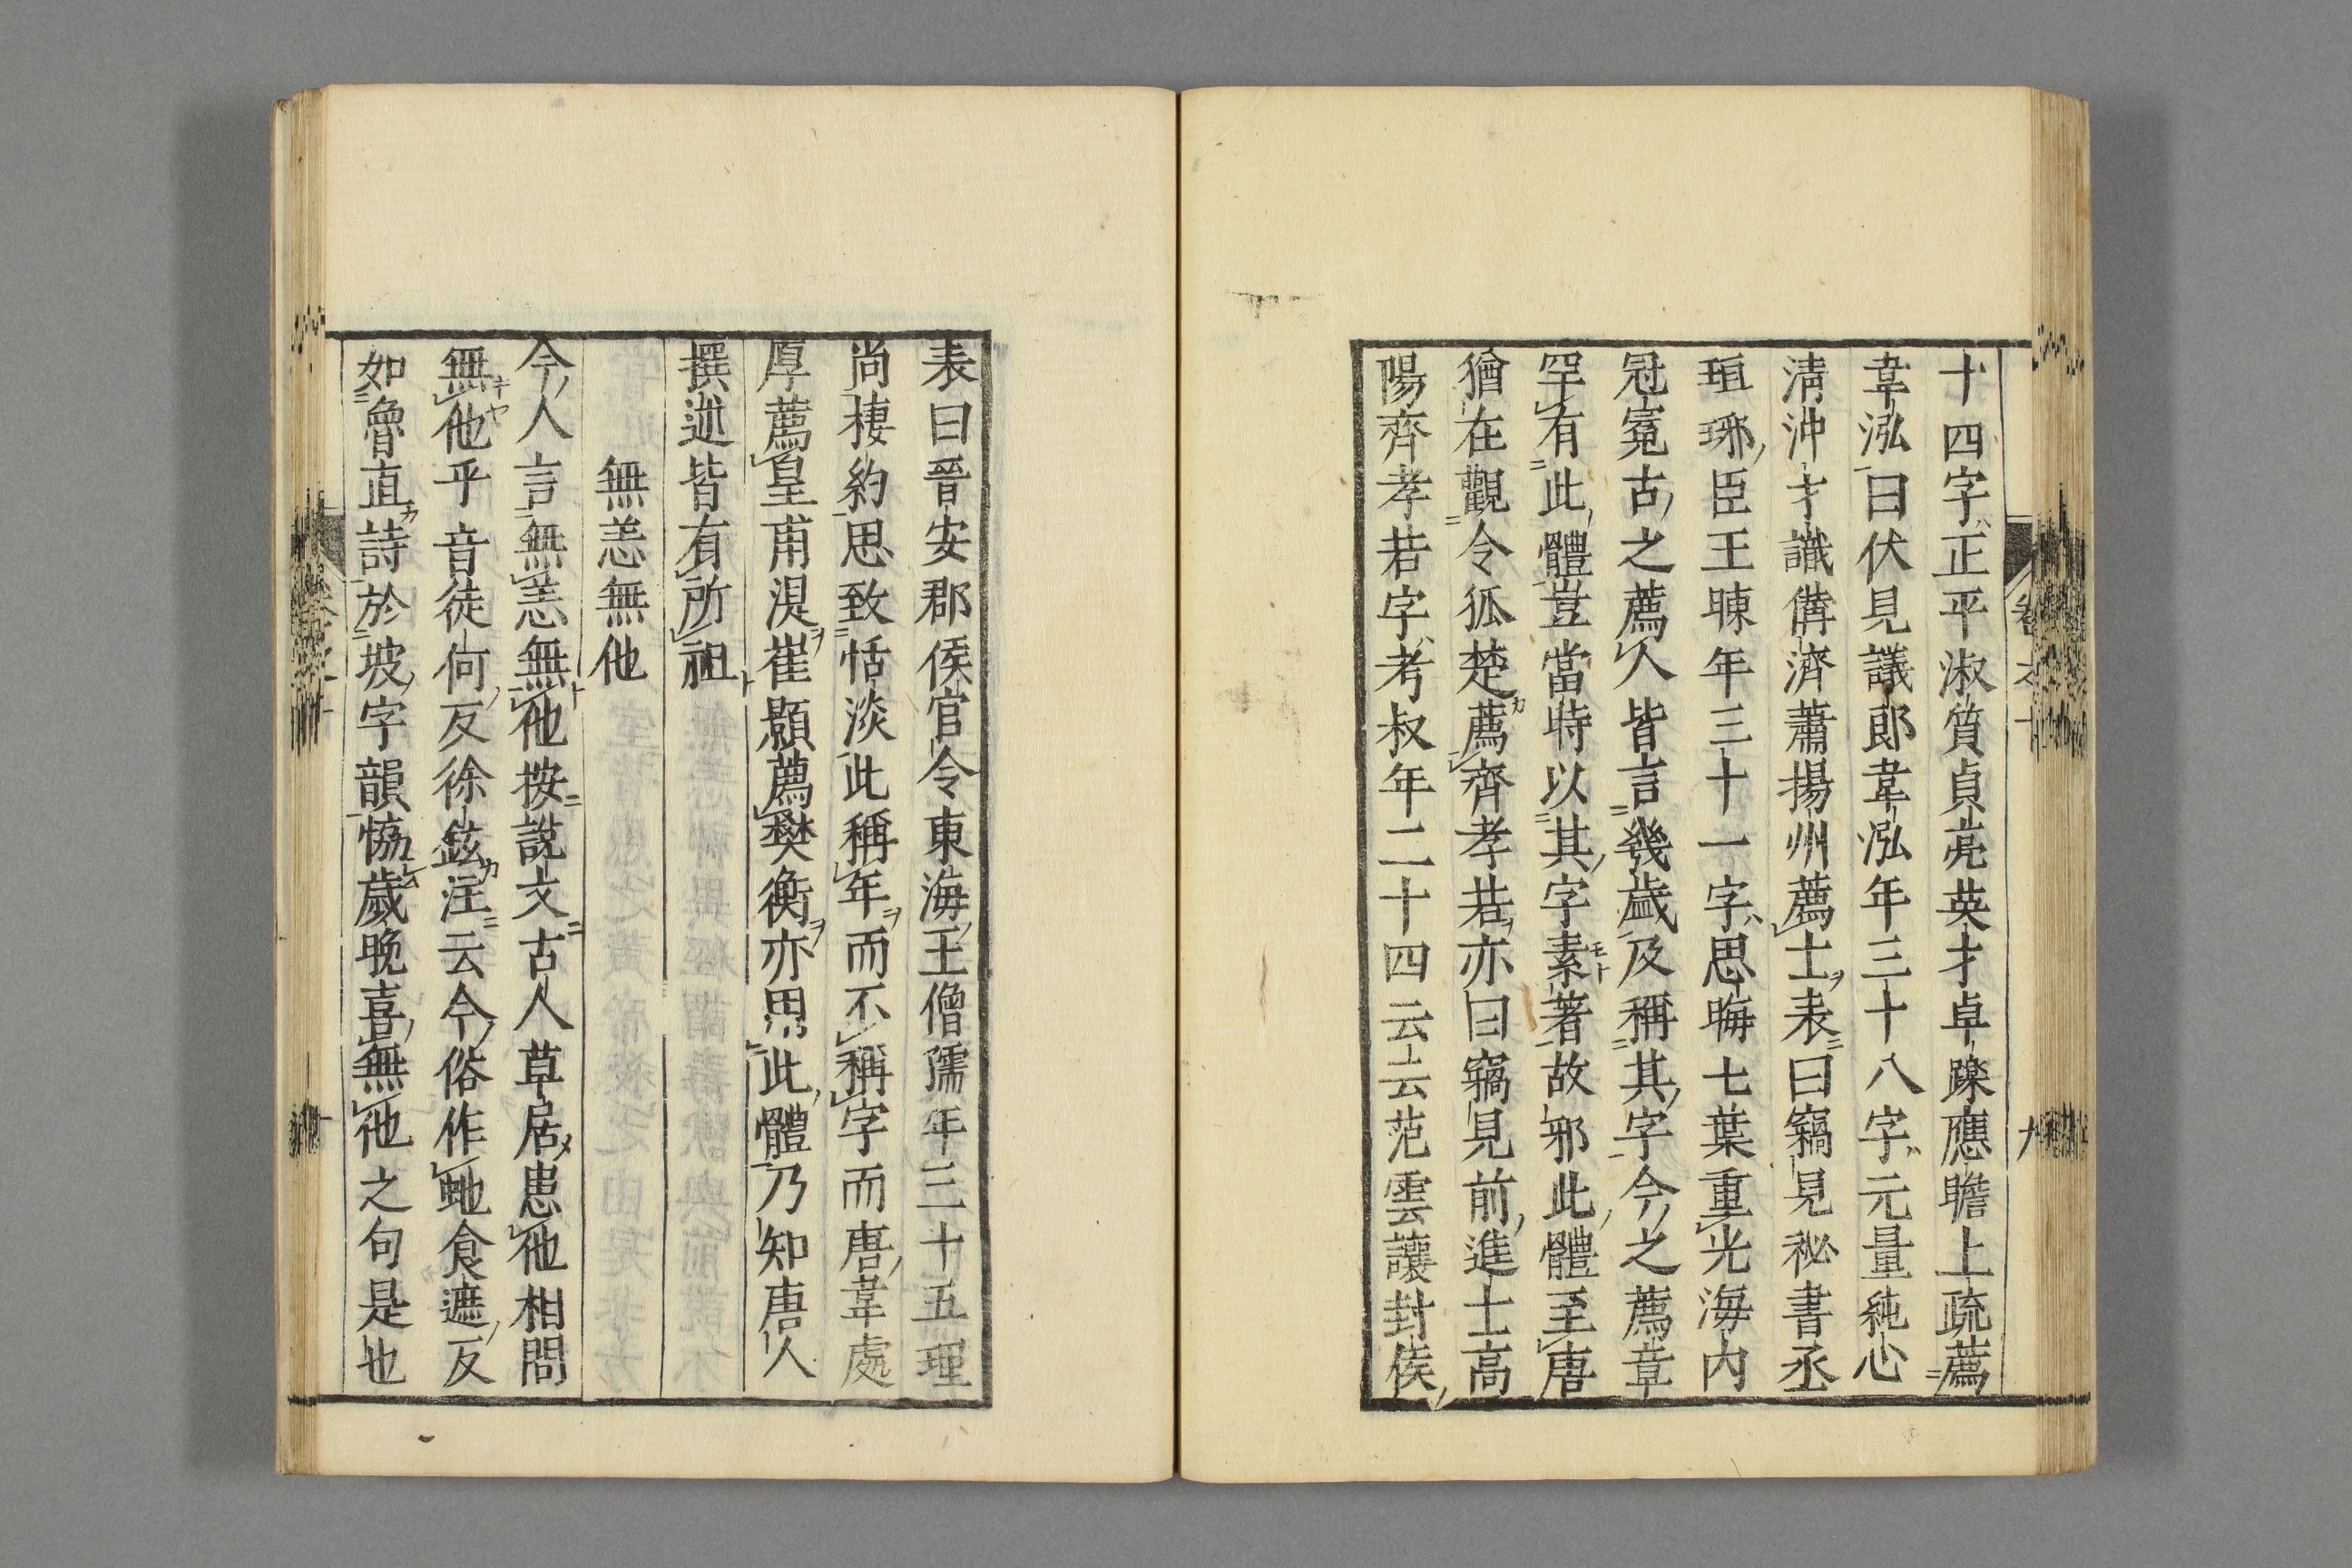 十四字正平淑質貞亮英才卓躒應瞻上疏薦
韋泓曰伏見議郎韋泓年三十八字元量純心
清沖才識備濟蕭揚州薦士表曰竊見秘書丞
瑯琊臣王暕年三十一字思晦七葉重光海內
冠冕古之薦人皆言幾歲及稱其字今之薦章
罕有此體豈當時以其字素著故邪此體至唐
猶在觀令狐楚薦齊孝若亦曰竊見前進士高
陽齊孝若字考叔年二十四云云范雲讓封侯
表曰晉安郡侯官令東海王僧孺年三十五理
尚棲約思致恬淡此稱年而不稱字而唐韋處
厚薦皇甫湜崔顥薦樊衡亦思此體乃知唐人
撰述皆有所祖
無恙無他
今人言無恙無他按說文古人草居患他相問
無他乎音徒何反徐鉉注云今俗作虵食遮反
如魯直詩於坡字韻恊歲晚喜無他之句是也